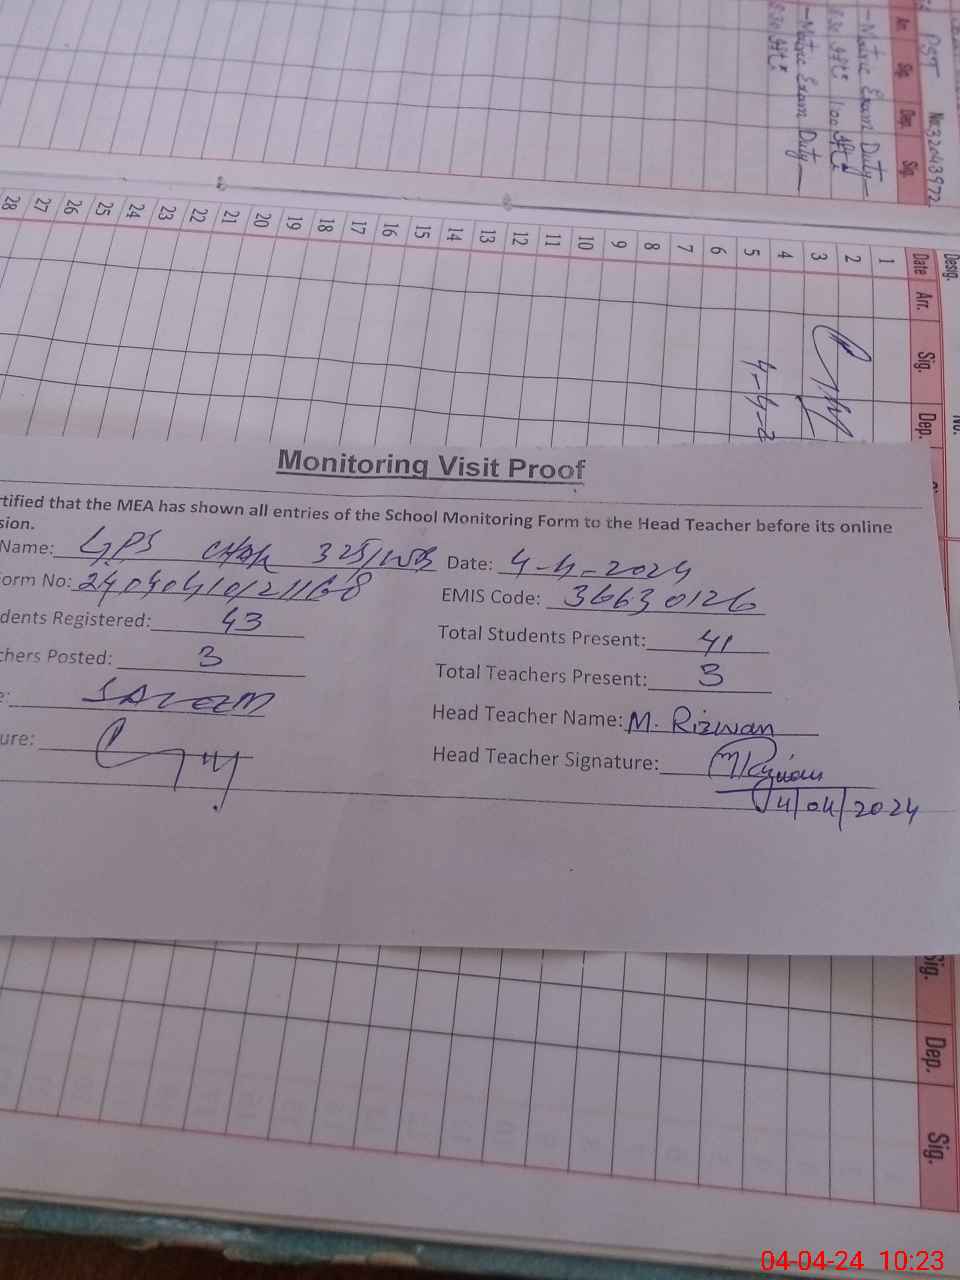 PST No: 32043972
Arr. Sig. Dep. Sig.
-Matric Exam Duty-
-Matric Exam Duty-
Desig. No.
Date Arr. Sig. Dep.
1
2
3
4
5
6
7
8
9
10
11
12
13
14
15
16
17
18
19
20
21
22
23
24
25
26
27
28
4-4-2
Monitoring Visit Proof
rtified that the MEA has shown all entries of the School Monitoring Form to the Head Teacher before its online
sion.
Name: GPS CHAK 325/WB Date: 4-4-2024
orm No: EMIS Code: 36630126
dents Registered: 43 Total Students Present: 41
chers Posted: 3 Total Teachers Present: 3
e: SALEEM Head Teacher Name: M. Rizwan
ure: Head Teacher Signature: MRizwan
4/04/2024
Sig. Dep. Sig.
04-04-24 10:23